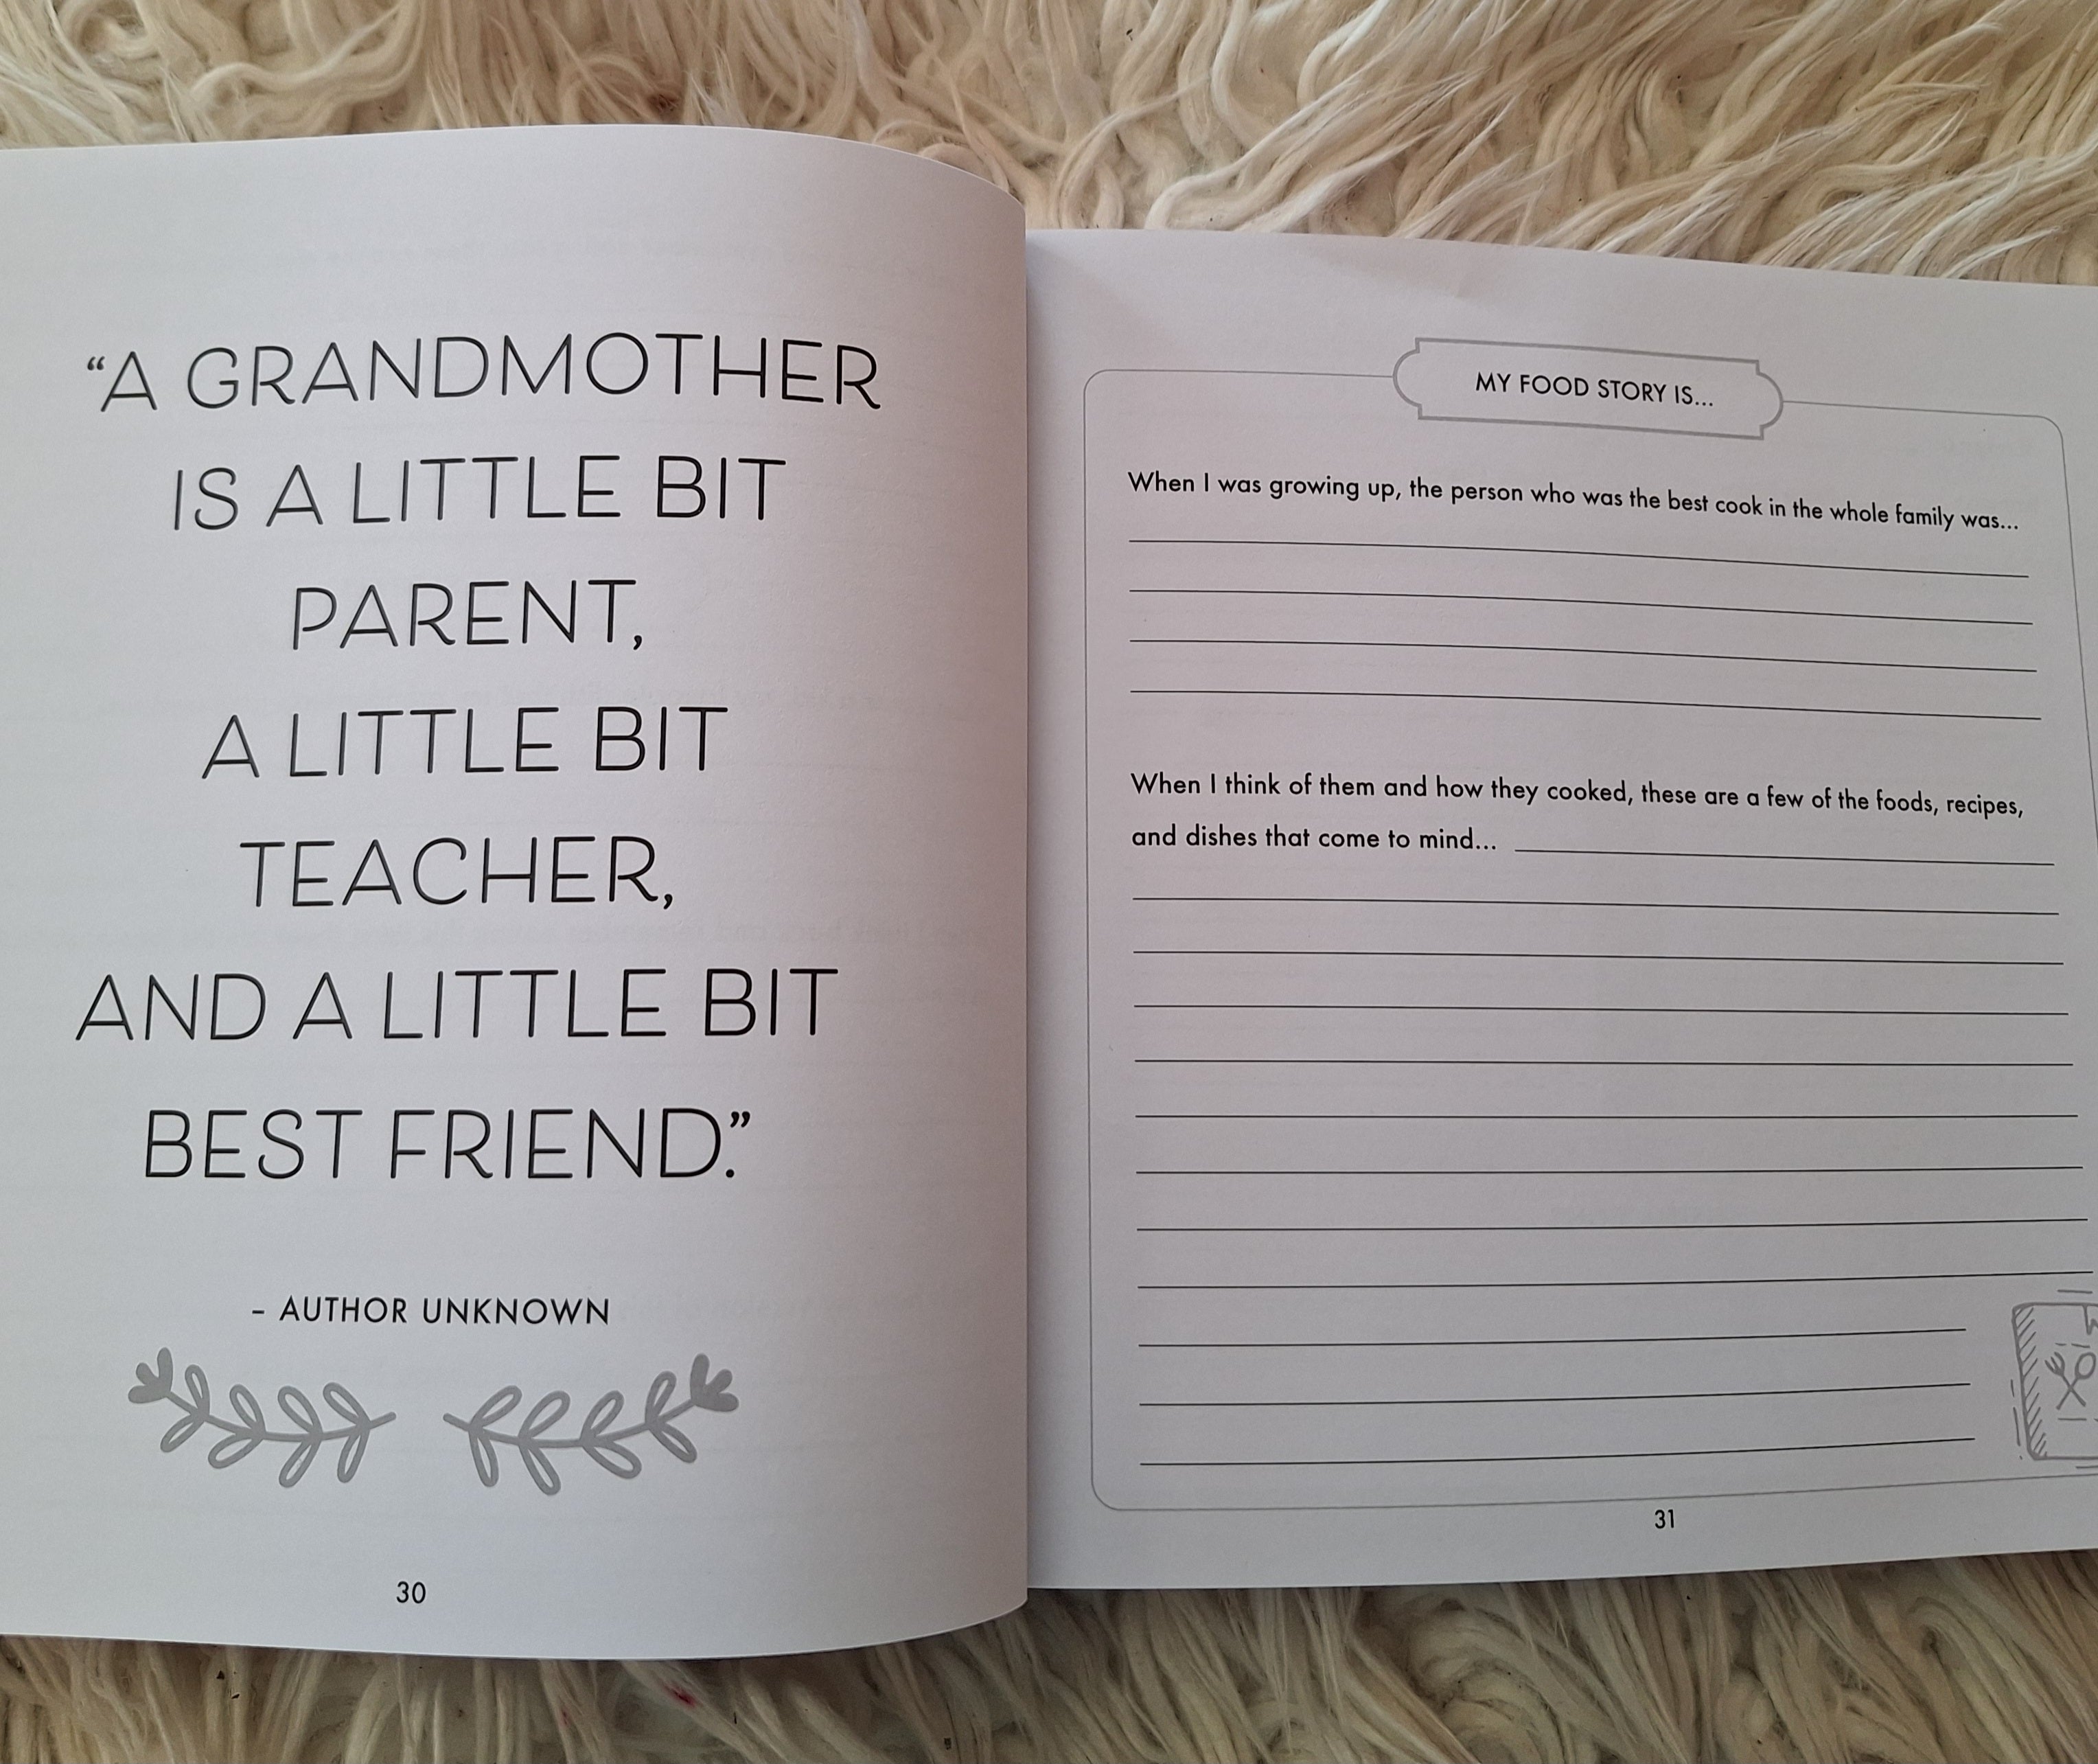 “A GRANDMOTHER
IS A LITTLE BIT
PARENT,
A LITTLE BIT
TEACHER,
AND A LITTLE BIT
BEST FRIEND.”
– AUTHOR UNKNOWN
30
MY FOOD STORY IS...
When I was growing up, the person who was the best cook in the whole family was...
When I think of them and how they cooked, these are a few of the foods, recipes,
and dishes that come to mind...
31